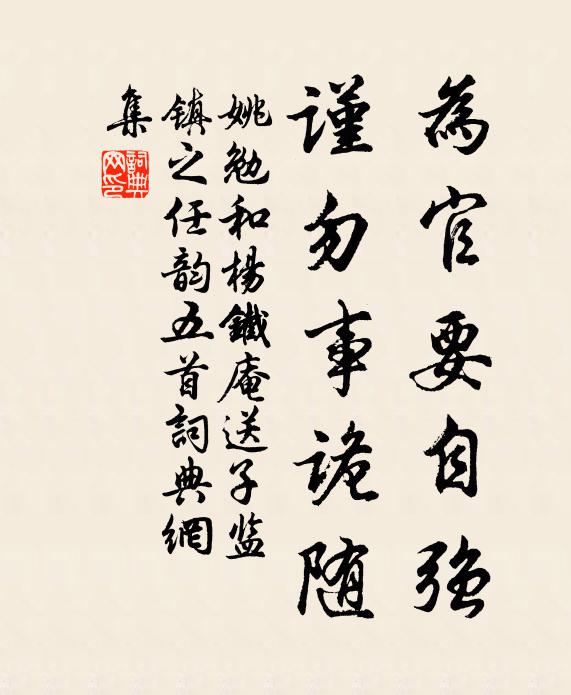 為官要自強
謹勿事詭随
姚勉和楊鐵庵送子监
鎮之任韵五首詞典網
集
詞典
网印